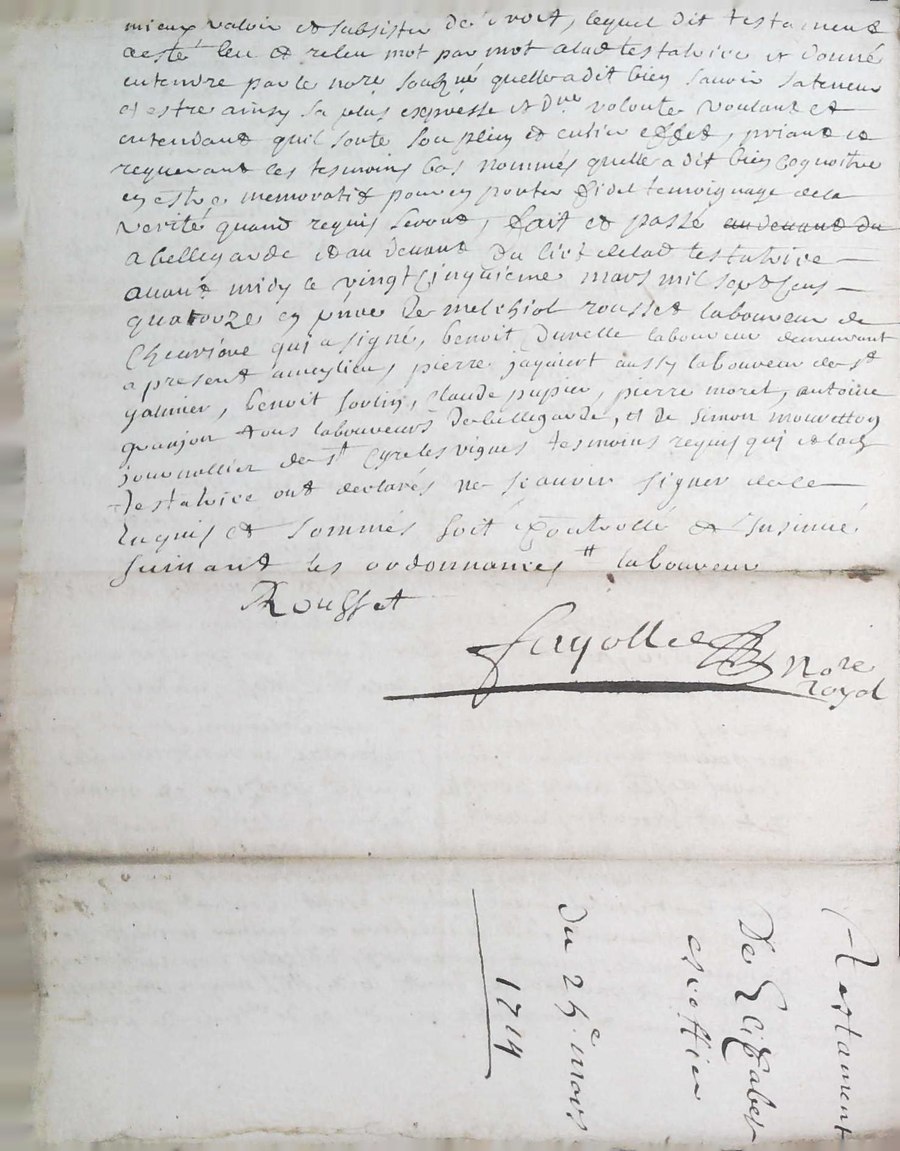 mieux valoir et subsister de droit, lequel dit testament
a esté leu et releu mot par mot a lad testatrice et donné
entendre par le nore soubné quelle a dit bien sauoir sa teneur
et estre ainsy sa plus expresse et dre volonté voulant et
entendant quil sorte son plein et entier effet, priant et
requerant les tesmoins bas nommés quelle a dit bien cognoitre
en estre memoratif pour en porter fidel temoignage de la
verité quand requis seront, fait et passé au deuant du
a bellegarde et au deuant du lict de lad testatrice
auant midy le vingt cinquieme mars mil sept cens
quatorze en pnce de melchiol rousset laboureur de
cheurière qui a signé, benoit durelle laboureur demeurant
a present a meylieu, pierre jaquiert aussy laboureur de st
galmier, benoit soulin, claude pupier, pierre moret, antoine
granjon tous laboureurs de bellegarde, et de simon
journallier de st cyre les vignes tesmoins requis qui et lad
testatrice ont declarés ne scauoir signer de ce
enquis et sommés soit controllé et insinué
suiuant les ordonnances laboureur
Rousset
fayolle nore
royal
Testament
De Elizabet
du 25e mars
1714